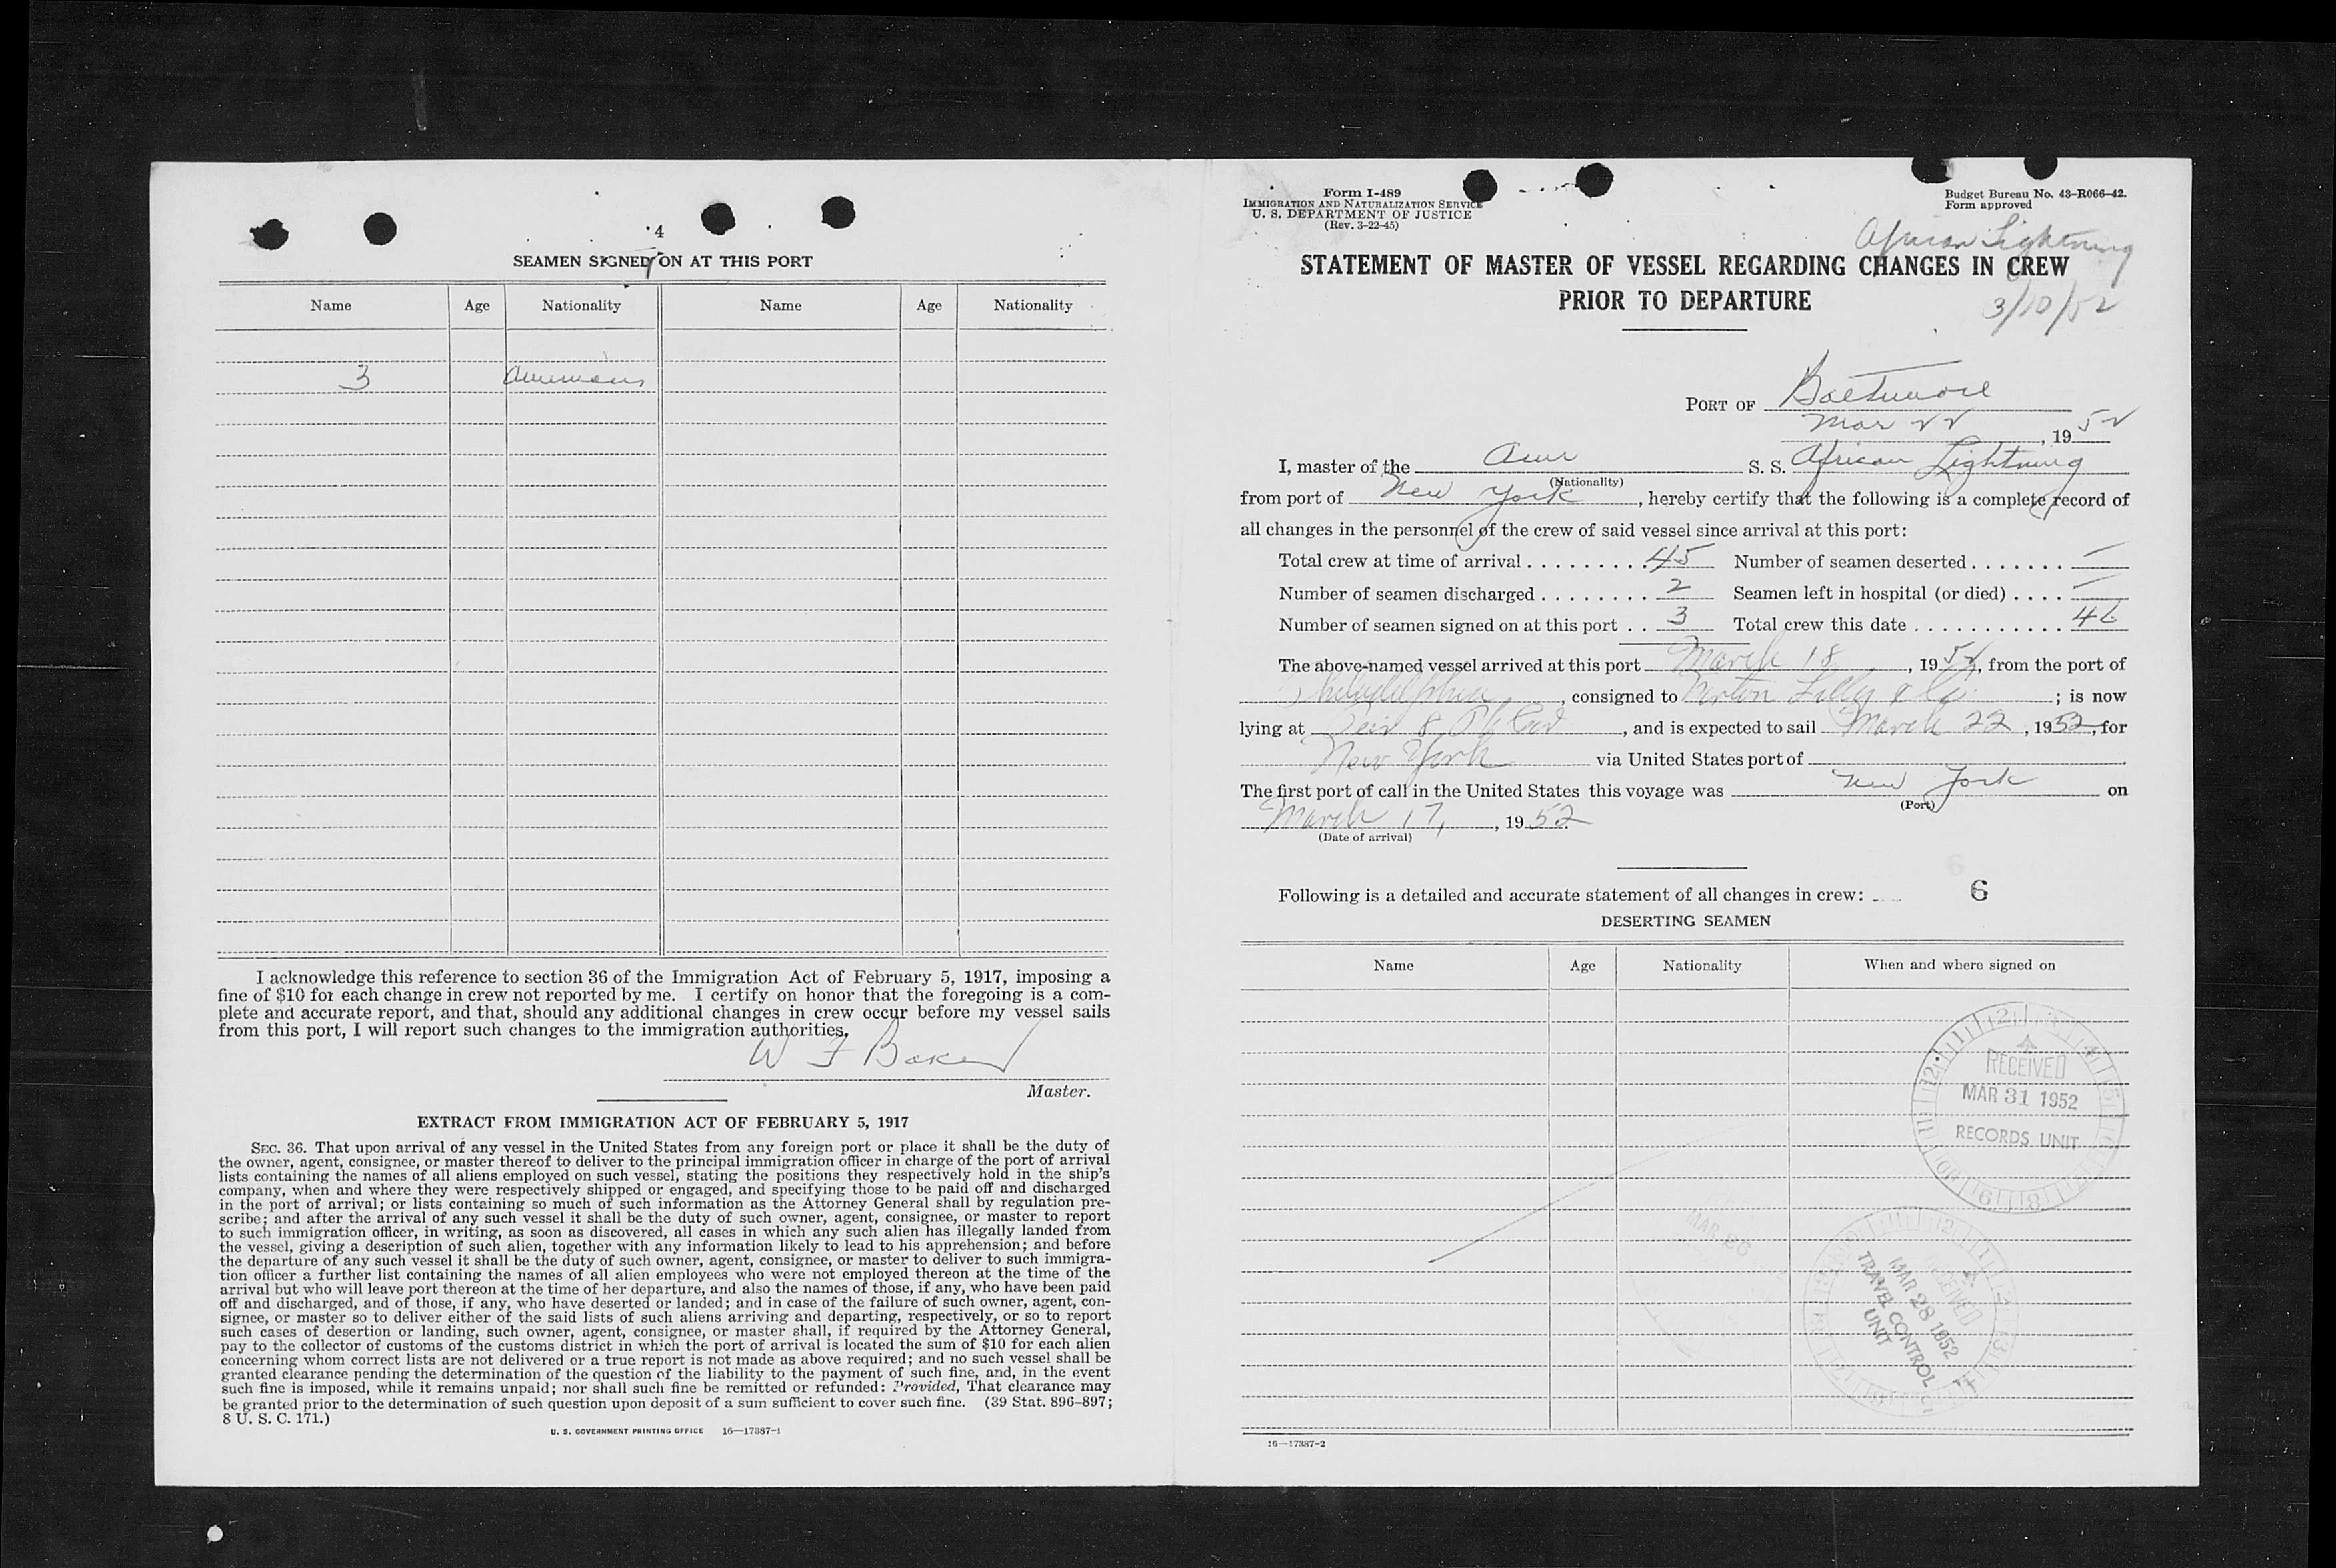 4
SEAMEN SIGNED ON AT THIS PORT
Name Age Nationality Name Age Nationality
3 Americans
I acknowledge this reference to section 36 of the Immigration Act of February 5, 1917, imposing a
fine of $10 for each change in crew not reported by me. I certify on honor that the foregoing is a com-
plete and accurate report, and that, should any additional changes in crew occur before my vessel sails
from this port, I will report such changes to the immigration authorities.
W F Baker
Master.
EXTRACT FROM IMMIGRATION ACT OF FEBRUARY 5, 1917
SEC. 36. That upon arrival of any vessel in the United States from any foreign port or place it shall be the duty of
the owner, agent, consignee, or master thereof to deliver to the principal immigration officer in charge of the port of arrival
lists containing the names of all aliens employed on such vessel, stating the positions they respectively hold in the ship's
company, when and where they were respectively shipped or engaged, and specifying those to be paid off and discharged
in the port of arrival; or lists containing so much of such information as the Attorney General shall by regulation pre-
scribe; and after the arrival of any such vessel it shall be the duty of such owner, agent, consignee, or master to report
to such immigration officer, in writing, as soon as discovered, all cases in which any such alien has illegally landed from
the vessel, giving a description of such alien, together with any information likely to lead to his apprehension; and before
the departure of any such vessel it shall be the duty of such owner, agent, consignee, or master to deliver to such immigra-
tion officer a further list containing the names of all alien employees who were not employed thereon at the time of the
arrival but who will leave port thereon at the time of her departure, and also the names of those, if any, who have been paid
off and discharged, and of those, if any, who have deserted or landed; and in case of the failure of such owner, agent, con-
signee, or master so to deliver either of the said lists of such aliens arriving and departing, respectively, or so to report
such cases of desertion or landing, such owner, agent, consignee, or master shall, if required by the Attorney General,
pay to the collector of customs of the customs district in which the port of arrival is located the sum of $10 for each alien
concerning whom correct lists are not delivered or a true report is not made as above required; and no such vessel shall be
granted clearance pending the determination of the question of the liability to the payment of such fine, and, in the event
such fine is imposed, while it remains unpaid; nor shall such fine be remitted or refunded: Provided, That clearance may
be granted prior to the determination of such question upon deposit of a sum sufficient to cover such fine. (39 Stat. 896–897;
8 U. S. C. 171.)
U. S. GOVERNMENT PRINTING OFFICE 16—17387-1
Form I-489
IMMIGRATION AND NATURALIZATION SERVICE
U. S. DEPARTMENT OF JUSTICE
(Rev. 3-22-45)
Budget Bureau No. 43-R066-42.
Form approved
African Lightning
STATEMENT OF MASTER OF VESSEL REGARDING CHANGES IN CREW
PRIOR TO DEPARTURE
3/10/52
PORT OF Baltimore
Mar 22, 1952
I, master of the Amer S. S. African Lightning
(Nationality)
from port of New York, hereby certify that the following is a complete record of
all changes in the personnel of the crew of said vessel since arrival at this port:
Total crew at time of arrival . . . . . . . . . 45 Number of seamen deserted . . . . . . . —
Number of seamen discharged . . . . . . . . 2 Seamen left in hospital (or died) . . . . —
Number of seamen signed on at this port . . 3 Total crew this date . . . . . . . . . . . . 46
The above-named vessel arrived at this port March 18, 1952, from the port of
Philadelphia, consigned to Norton Lilly & Co.; is now
lying at Pier 8, and is expected to sail March 22, 1952, for
New York via United States port of
The first port of call in the United States this voyage was New York on
(Port)
March 17, 1952.
(Date of arrival)
Following is a detailed and accurate statement of all changes in crew:
6
DESERTING SEAMEN
Name Age Nationality When and where signed on
RECEIVED
MAR 31 1952
RECORDS UNIT
MAR 28
RECEIVED
MAR 28 1952
TRAVEL CONTROL
UNIT
16—17387-2